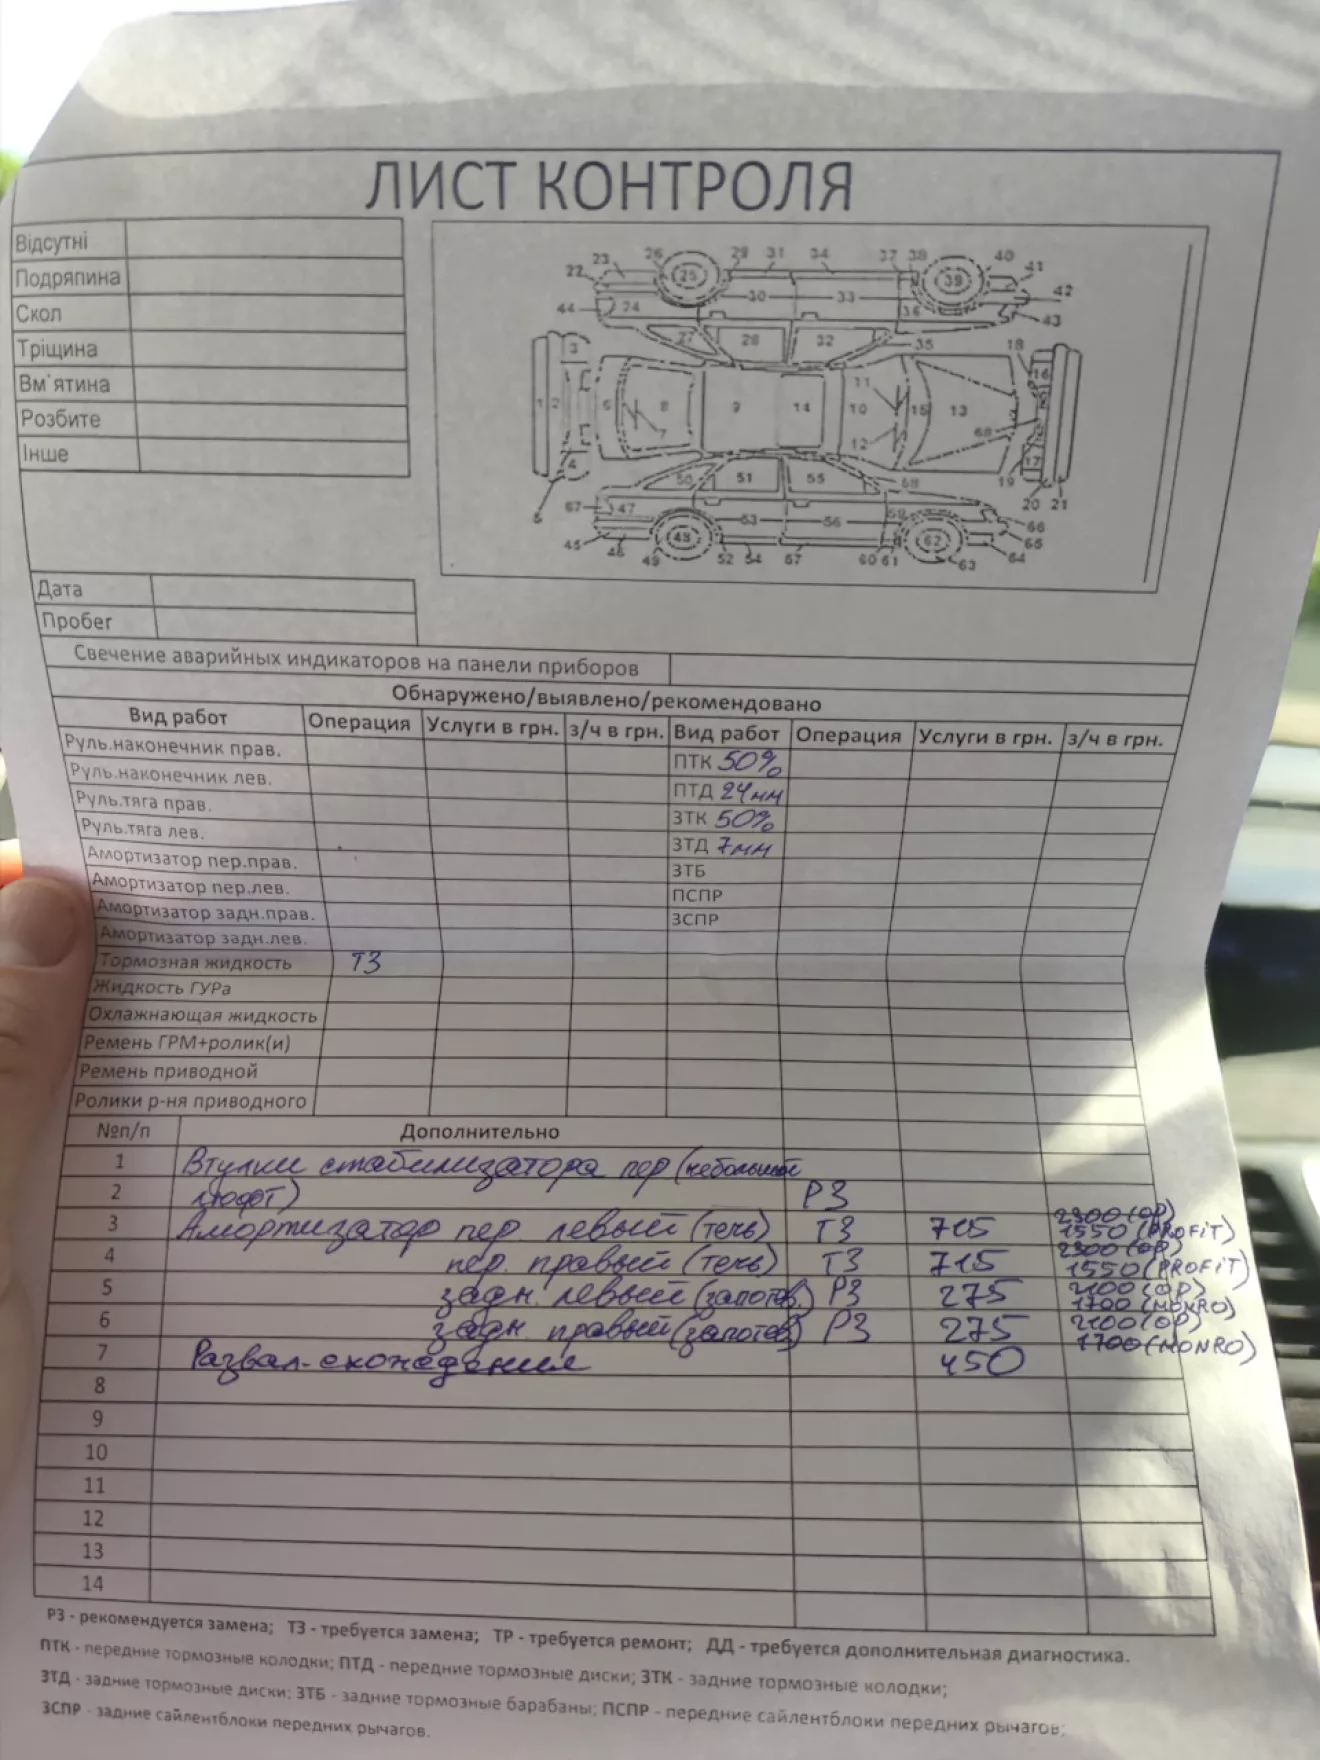 ЛИСТ КОНТРОЛЯ
Відсутні
Подряпина
Скол
Тріщина
Вм'ятина
Розбите
Інше
23 26 29 31 34 37 38 40 41
22 25 39 42
44 24 30 33 36 43
27 28 32 35
3 18 16
1 2 6 8 9 14 10 11 15 13
7 12 68
4 17 19
5 20 21
50 51 55
67 47 53 56 66
45 46 48 62 65
49 52 54 57 60 61 63 64
Дата
Пробег
Свечение аварийных индикаторов на панели приборов
Обнаружено/выявлено/рекомендовано
Вид работ Операция Услуги в грн. з/ч в грн. Вид работ Операция Услуги в грн. з/ч в грн.
Руль.наконечник прав. ПТК 50%
Руль.наконечник лев. ПТД 24мм
Руль.тяга прав. ЗТК 50%
Руль.тяга лев. ЗТД 7мм
Амортизатор пер.прав. ЗТБ
Амортизатор пер.лев. ПСПР
Амортизатор задн.прав. ЗСПР
Амортизатор задн.лев.
Тормозная жидкость ТЗ
Жидкость ГУРа
Охлажнающая жидкость
Ремень ГРМ+ролик(и)
Ремень приводной
Ролики р-ня приводного
№п/п Дополнительно
1 Втулки стабилизатора пер (небольшой
2 люфт) РЗ
2300 (ОР)
3 Амортизатор пер. левый (течь) ТЗ 715 1550 (PROFIT)
2300 (ОР)
4 пер. правый (течь) ТЗ 715 1550 (PROFIT)
2100 (ОР)
5 задн. левый (запотев.) РЗ 275 1700 (MONRO)
2100 (ОР)
6 задн. правый (запотев) РЗ 275 1700 (MONRO)
7 Развал-схождения 450
8
9
10
11
12
13
14
РЗ - рекомендуется замена; ТЗ - требуется замена; ТР - требуется ремонт; ДД - требуется дополнительная диагностика.
ПТК - передние тормозные колодки; ПТД - передние тормозные диски; ЗТК - задние тормозные колодки;
ЗТД - задние тормозные диски; ЗТБ - задние тормозные барабаны; ПСПР - передние сайлентблоки передних рычагов;
ЗСПР - задние сайлентблоки передних рычагов.